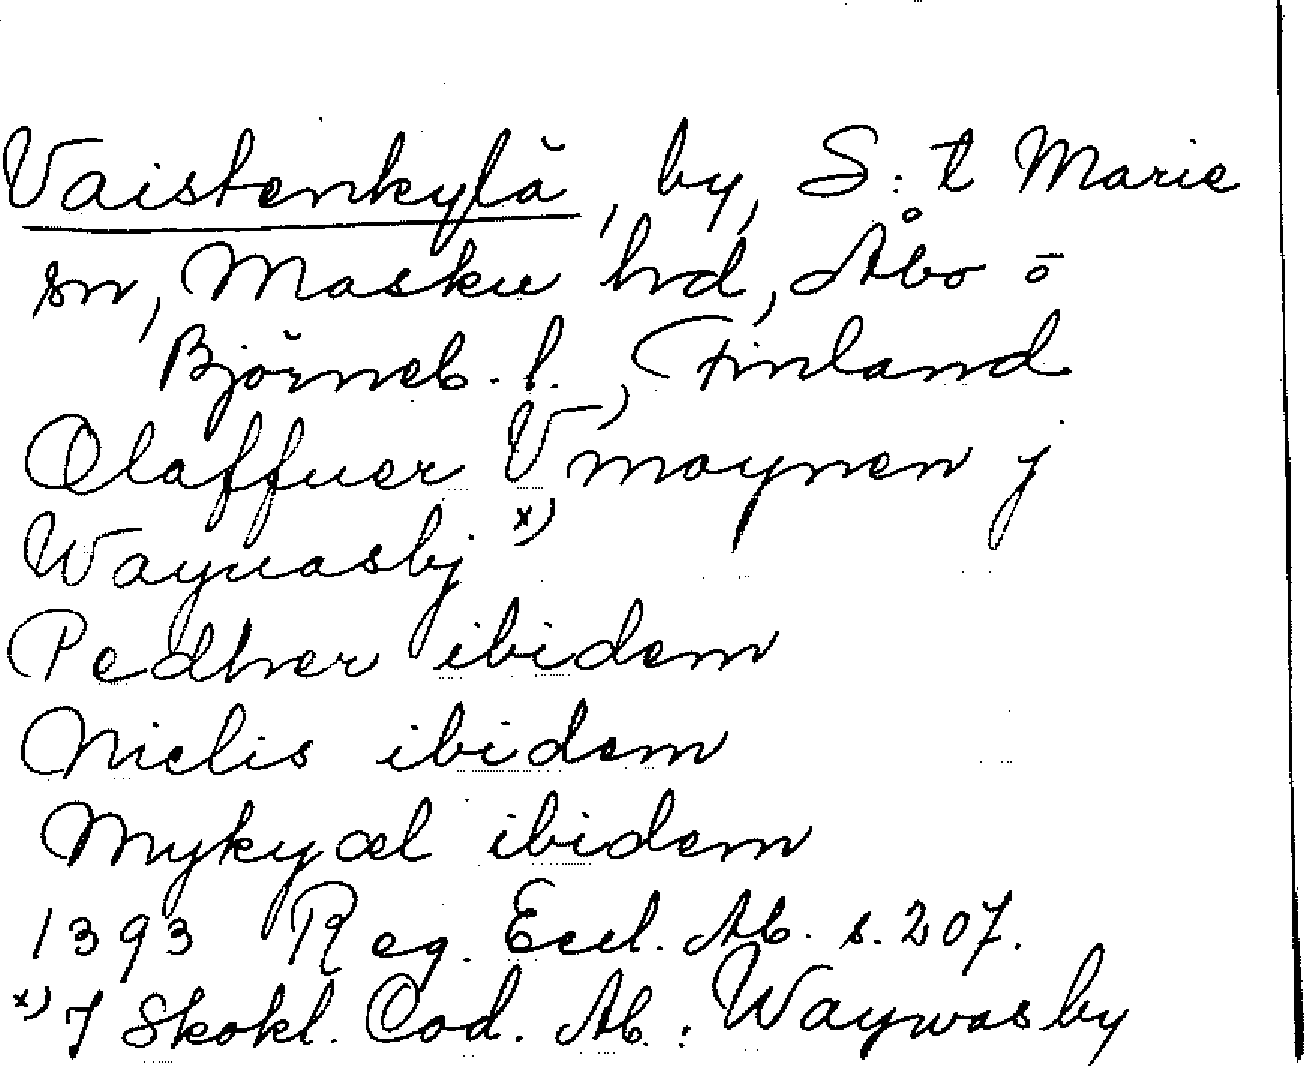 Vaistenkylä, by, S:t Marie
sn, Masku hd, Åbo o
Björneb. l., Finland
Olaffuer Vmoynen j
Wayuasbj x)
Pedher ibidem
Nielis ibidem
Mykyæl ibidem
1393 Reg. Eccl. Ab. s. 207.
x) I Skokl. Cod. Ab.: Waywasby